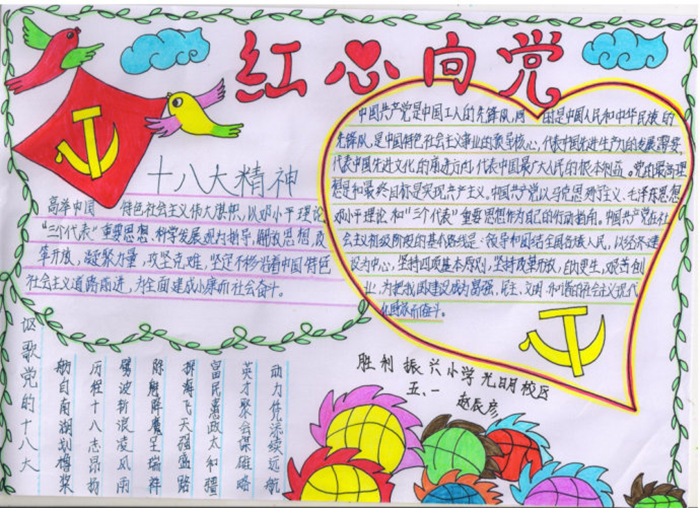 红心向党
十八大精神
高举中国 特色社会主义伟大旗帜,以邓小平理论
"三个代表"重要思想、科学发展观为指导,解放思想,改
革开放,凝聚力量,攻坚克难,坚定不移沿着中国特色
社会主义道路前进,为全面建成小康而社会奋斗。
中国共产党是中国工人的先锋队,同 时是中国人民和中华民族的
先锋队,是中国特色社会主义事业的领导核心,代表中国先进生产力的发展需要,
代表中国先进文化的前进方向,代表中国最广大人民的根本利益。党的最高理
想是和最终目标是实现共产主义。中国共产党以马克思列宁主义、毛泽东思想
邓小平理论和"三个代表"重要思想作为自己的行动指南。中国共产党在社
会主义初级阶段的基本路线是:领导和团结全国各族人民,以经济建
设为中心,坚持四项基本原则,坚持改革开放,自力更生,艰苦创
业,为把我国建设成为富强、民主、文明、和谐的社会主义现代
化国家而奋斗。
讴歌党的十八大
舫自南湖划桨
历程十八志昂扬
劈波斩浪凌风雨
除魅降魔呈瑞祥
海飞天强盛路
富民惠政太和疆
英才聚会谋略
动力传续远航
胜利振兴小学光明校区
五、一
赵辰彦